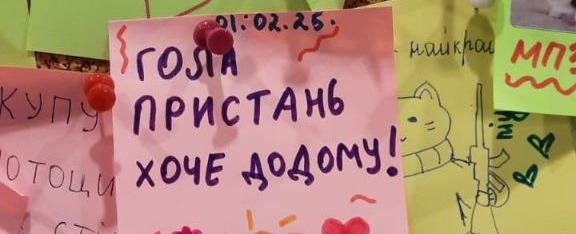 01:02.25.
ГОЛА
ПРИСТАНЬ
ХОЧЕ ДОДОМУ!
КУПУ
ОТОЦИ
найкра
МПЗ